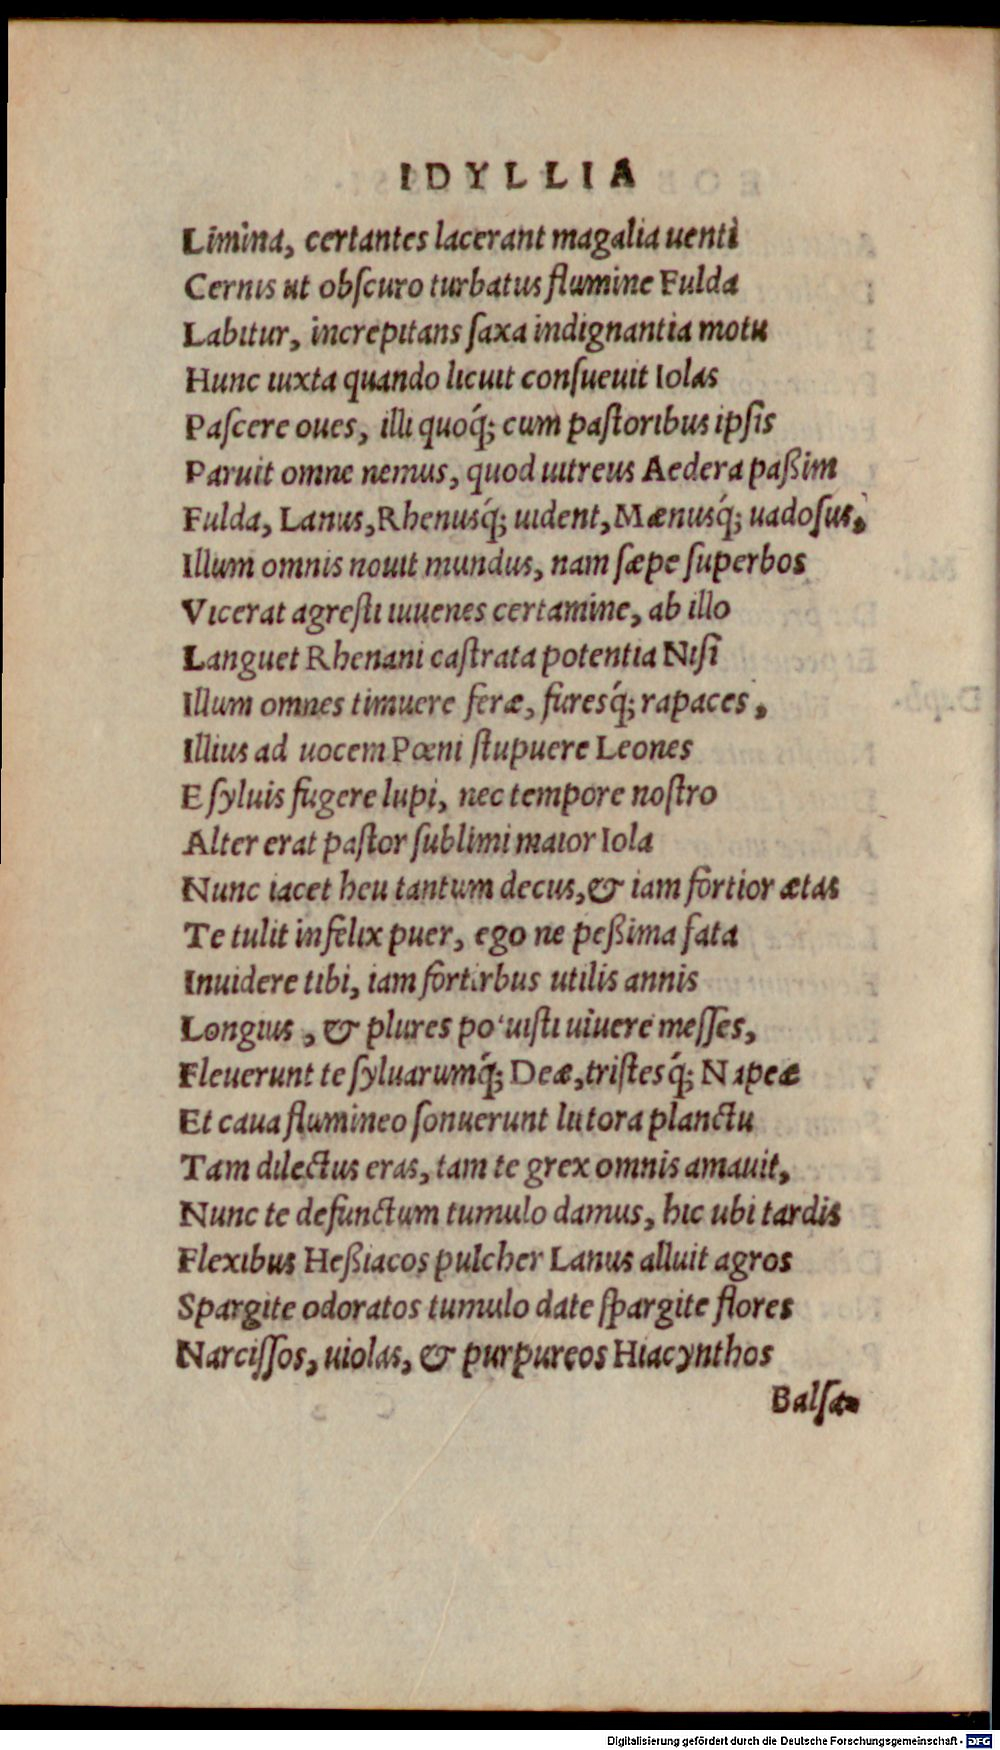 IDYLLIA
Limina, certantes lacerant magalia uenti
Cernis ut obſcuro turbatus flumine Fulda
Labitur, increpitans ſaxa indignantia motu
Hunc iuxta quando licuit conſueuit Iolas
Paſcere oues, illi quoq́; cum paſtoribus ipſis
Paruit omne nemus, quod uitreus Aedera paßim
Fulda, Lanus, Rhenusq́; uident, Mænusq́; uadoſus,
Illum omnis nouit mundus, nam ſæpe ſuperbos
Vicerat agreſti iuuenes certamine, ab illo
Languet Rhenani caſtrata potentia Niſi
Illum omnes timuere feræ, furesq́; rapaces,
Illius ad uocem Pœni ſtupuere Leones
E ſyluis fugere lupi, nec tempore noſtro
Alter erat paſtor ſublimi maior Iola
Nunc iacet heu tantum decus, & iam fortior ætas
Te tulit infelix puer, ego ne peßima fata
Inuidere tibi, iam fortibus utilis annis
Longius, & plures potuiſti uiuere meſſes,
Fleuerunt te ſyluarumq́; Deæ, triſtesq́; Napeæ
Et caua flumineo ſonuerunt littora planctu
Tam dilectus eras, tam te grex omnis amauit,
Nunc te defunctum tumulo damus, hic ubi tardis
Flexibus Heßiacos pulcher Lanus alluit agros
Spargite odoratos tumulo date ſpargite flores
Narciſſos, uiolas, & purpureos Hiacynthos
Balſa-
Digitalisierung gefördert durch die Deutsche Forschungsgemeinschaft - DFG